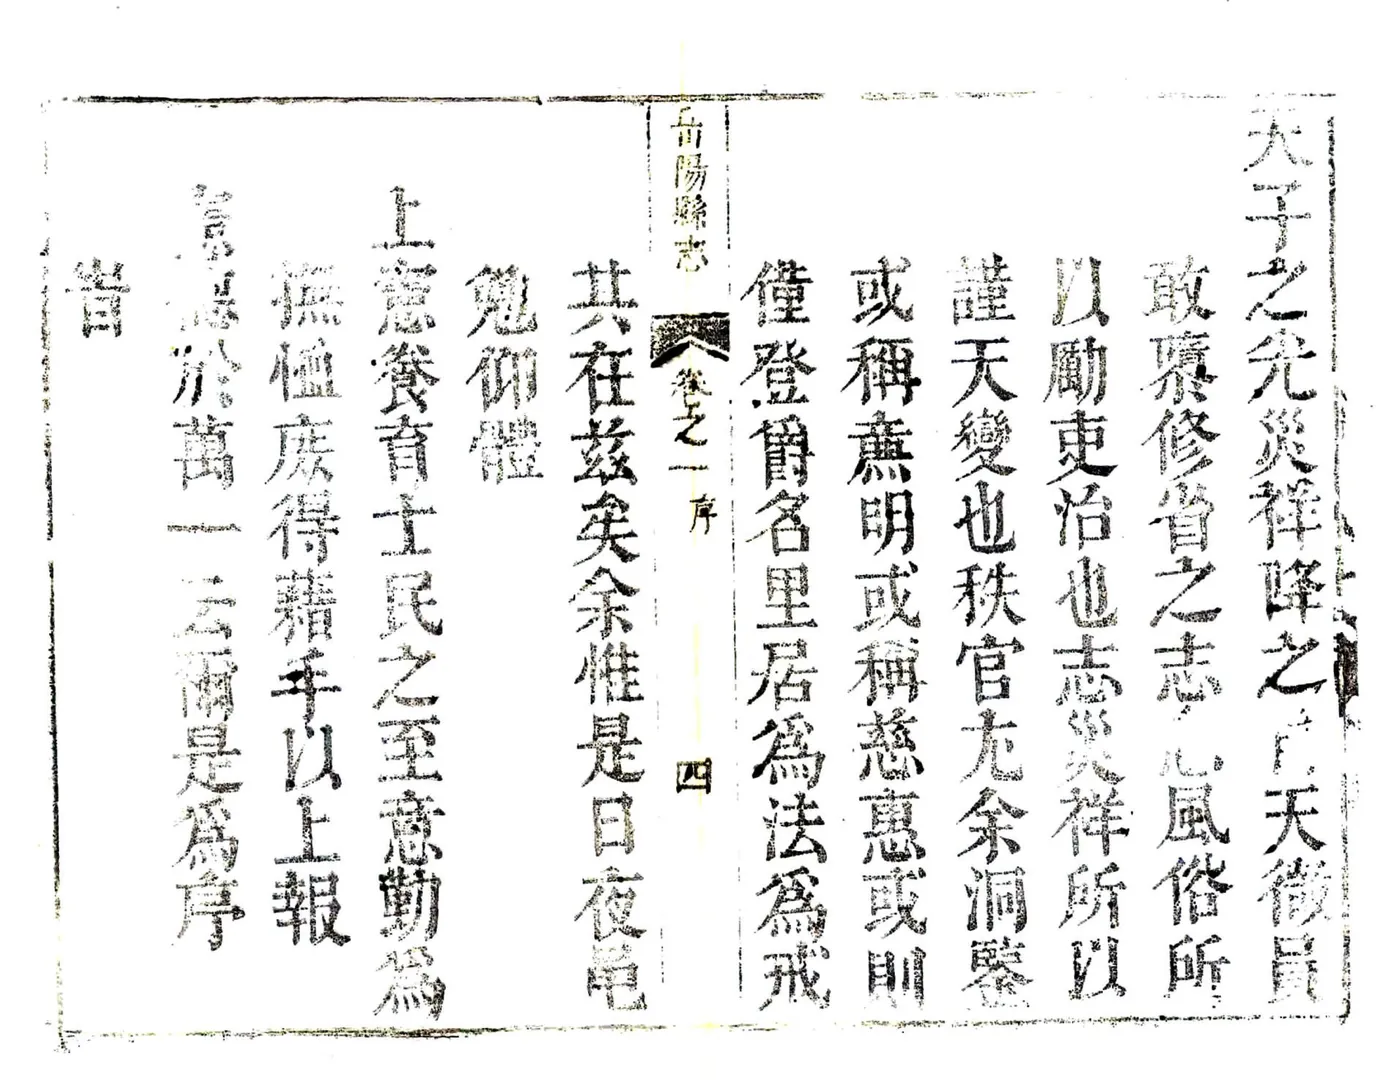 天子之光災祥降之自天徵員
敢隳修省之志風俗所
以勵吏治也志災祥所以
謹天變也秩官尢余洞鑒
或稱廉明或稱慈惠或則
僅登爵名里居為法為戒
岳陽縣志
卷之一
序
四
其在茲矣余惟是日夜黽
勉仰體
上憲養育士民之至意勤為
撫恤庶得藉手以上報
憲德於萬一云爾是為序
旹